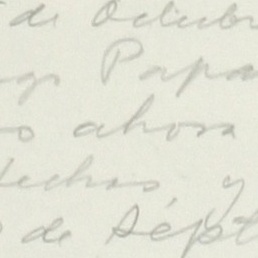 de Octubr
Papa
ahora
fechas y
de Sépt